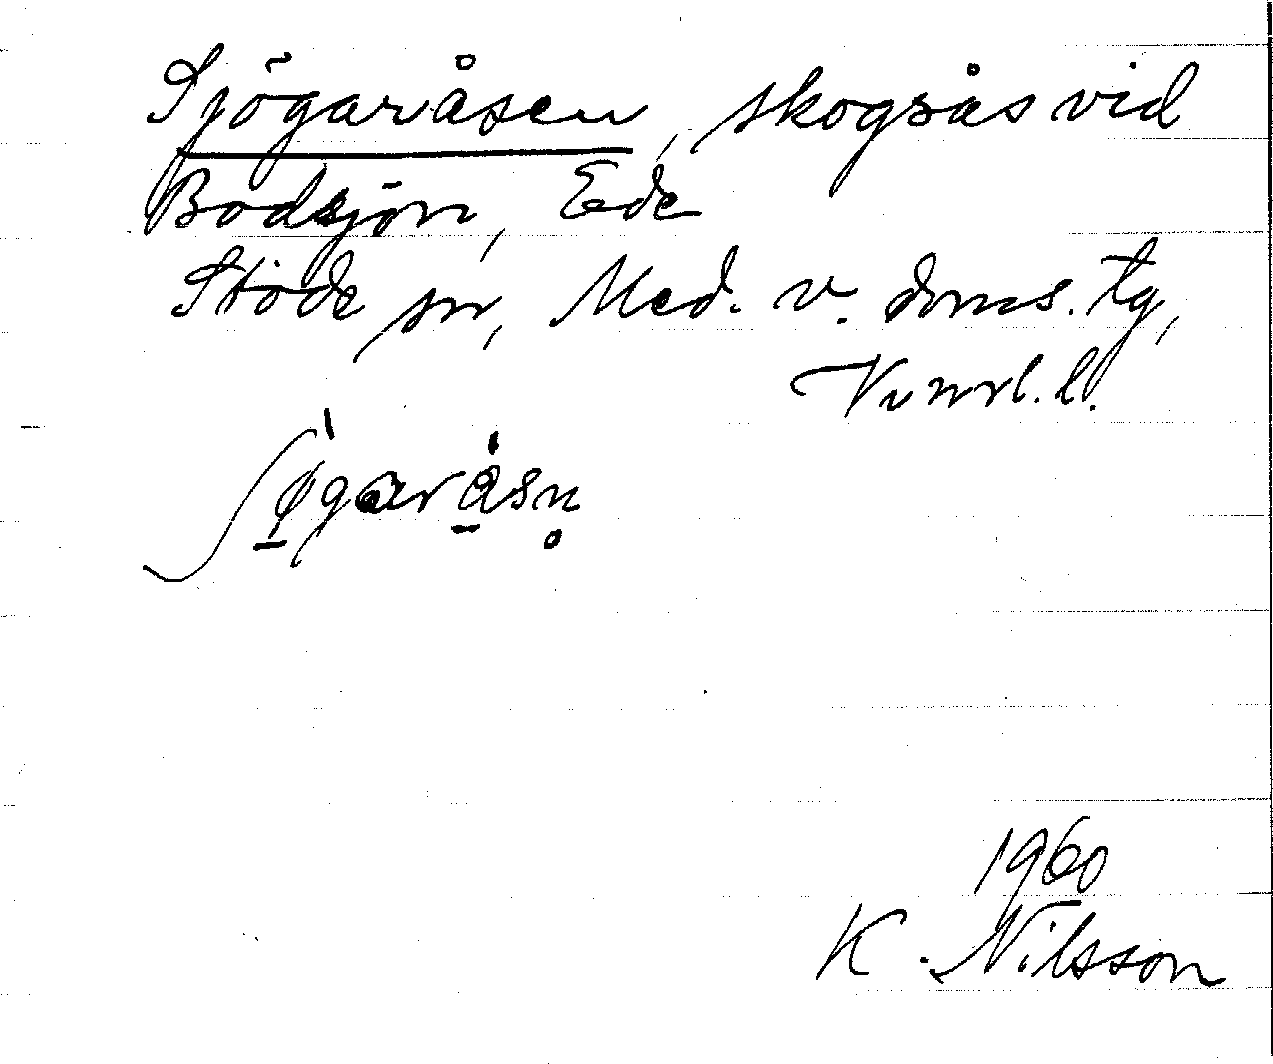 Sjögaråsen, skogsås vid
Bodsjön, Ede
Stöde sn, Med. v. doms. tg,
Vvnrl. l.
ʃø̱garå̱sn̥
1960
K. Nilsson